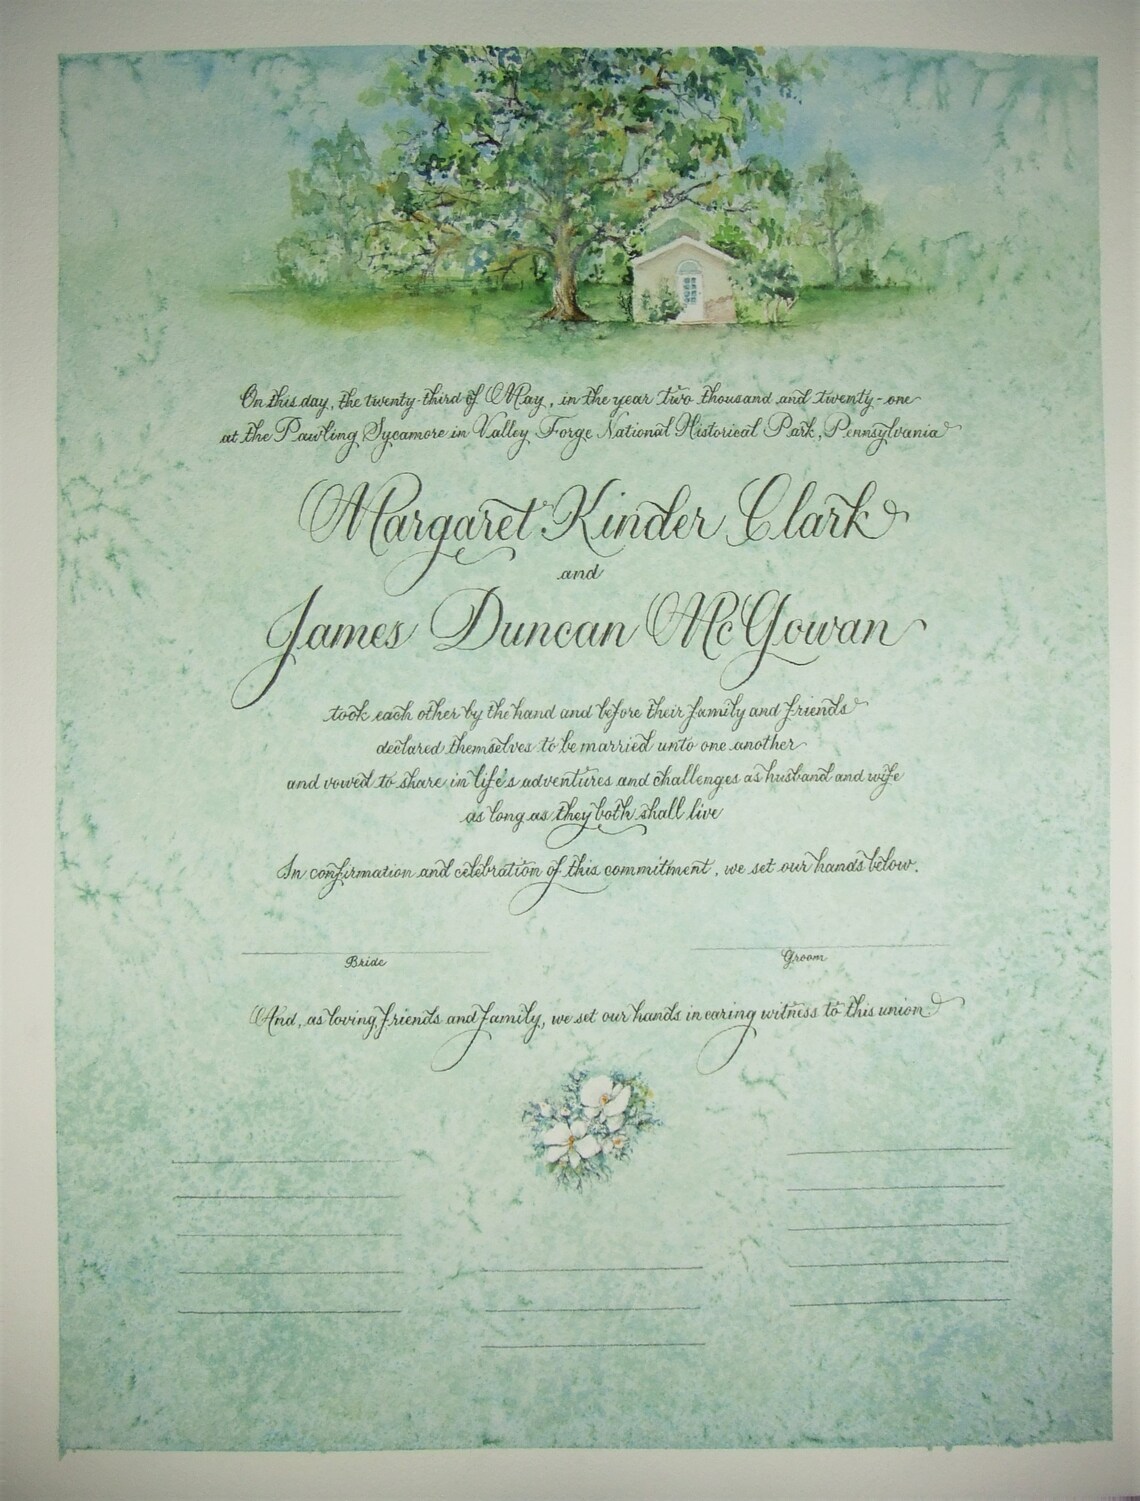 On this day, the twenty-third of May, in the year two thousand and twenty-one
at the Pawling Sycamore in Valley Forge National Historical Park, Pennsylvania
Margaret Kinder Clark
and
James Duncan McGowan
took each other by the hand and before their family and friends
declared themselves to be married unto one another
and vowed to share in life's adventures and challenges as husband and wife
as long as they both shall live
In confirmation and celebration of this commitment, we set our hands below.
Bride
Groom
And, as loving friends and family, we set our hands in caring witness to this union